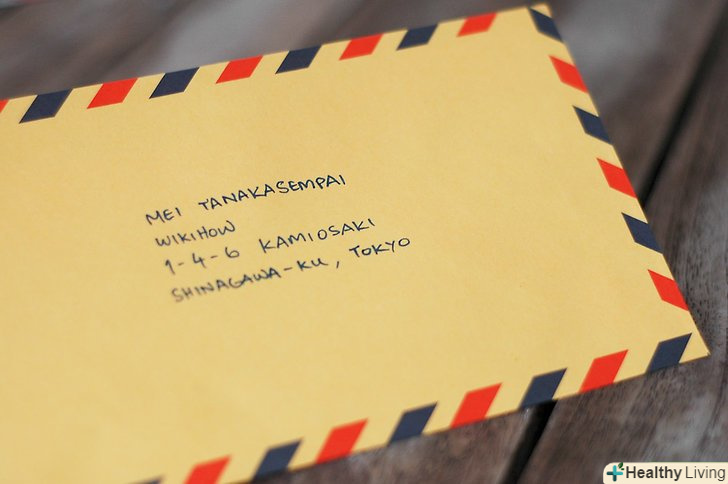 MEI TANAKASEMPAI
WIKIHOW
1-4-6 KAMIOSAKI
SHINAGAWA-KU, TOKYO
Healthy Living